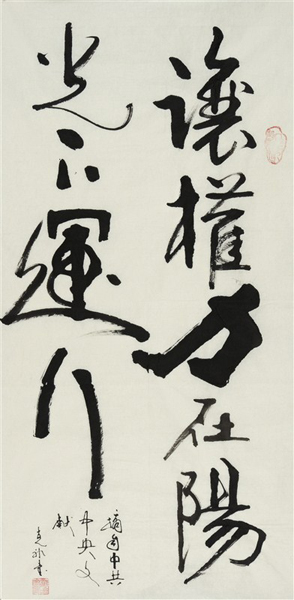 讓權力在陽
光下運行
摘自中共
中央文
獻